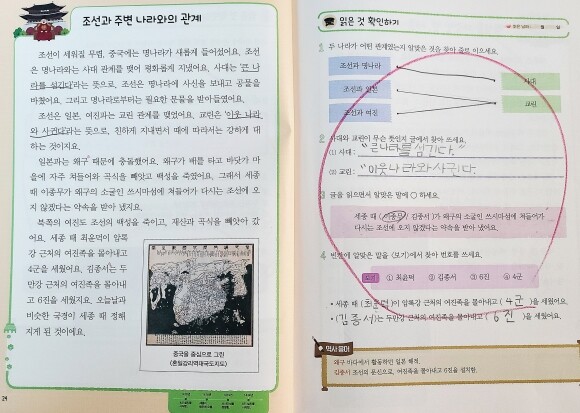 조선과 주변 나라와의 관계
조선이 세워질 무렵, 중국에는 명나라가 새롭게 들어섰어요. 조선
은 명나라와는 사대 관계를 맺어 평화롭게 지냈어요. 사대는 '큰 나
라를 섬긴다'라는 뜻으로, 조선은 명나라에 사신을 보내고 공물을
바쳤어요. 그리고 명나라로부터는 필요한 문물을 받아들였어요.
조선은 일본, 여진과는 교린 관계를 맺었어요. 교린은 '이웃 나라
와 사귄다'라는 뜻으로, 친하게 지내면서 때에 따라서는 강하게 대
하는 것이지요.
일본과는 왜구 때문에 충돌했어요. 왜구가 배를 타고 바닷가 마
을에 자주 쳐들어와 곡식을 빼앗고 백성을 죽였어요. 그래서 세종
때 이종무가 왜구의 소굴인 쓰시마섬에 쳐들어가 다시는 조선에 오
지 않겠다는 약속을 받아 냈지요.
북쪽의 여진도 조선의 백성을 죽이고, 재산과 곡식을 빼앗아 갔
어요. 세종 때 최윤덕이 압록
강 근처의 여진족을 몰아내고
4군을 세웠어요. 김종서는 두만
강 근처의 여진족을 몰아내
고 6진을 세웠지요. 오늘날과
비슷한 국경이 세종 때 정해
지게 된 것이에요.
중국을 중심으로 그린
〈혼일강리역대국도지도〉
24
읽은 것 확인하기
월 일
1 두 나라가 어떤 관계였는지 알맞은 것을 찾아 줄로 이으세요.
조선과 명나라
조선과 일본
조선과 여진
사대
교린
2 사대와 교린이 무슨 뜻인지 글에서 찾아 쓰세요.
(1) 사대: "큰나라를 섬긴다."
(2) 교린: "이웃나라와사귄다."
3 글을 읽으면서 알맞은 말에 ○ 하세요.
세종 때 (이종무 / 김종서)가 왜구의 소굴인 쓰시마섬에 쳐들어가
다시는 조선에 오지 않겠다는 약속을 받아 냈어요.
4 빈칸에 알맞은 말을 〈보기〉에서 찾아 번호를 쓰세요.
보기 ① 최윤덕 ② 김종서 ③ 6진 ④ 4군
• 세종 때 (최윤덕)이 압록강 근처의 여진족을 몰아내고 (4군)을 세웠어요.
• (김종서)는 두만강 근처의 여진족을 몰아내고 (6진)을 세웠어요.
역사 용어
왜구 바다에서 활동하던 일본 해적.
김종서 조선의 문신으로, 여진족을 몰아내고 6진을 설치함.